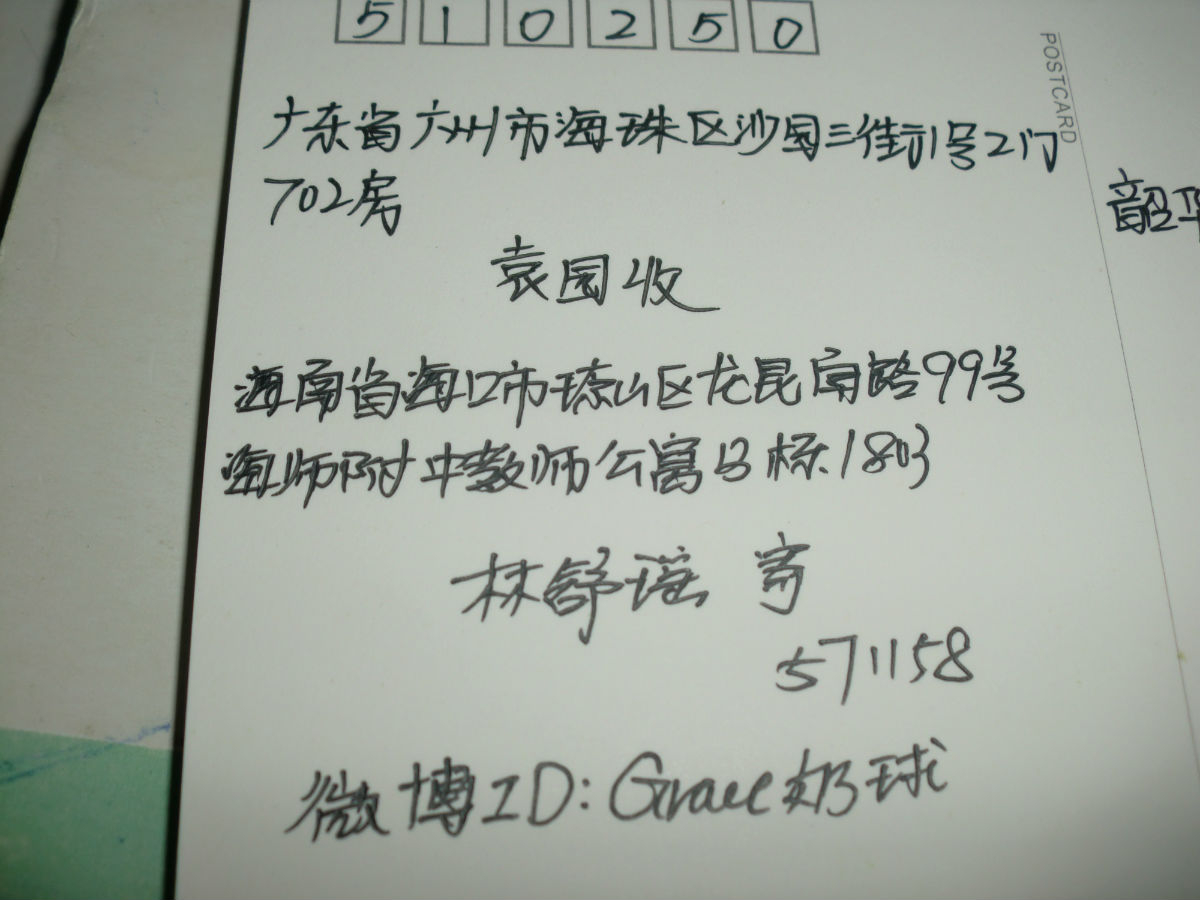 510250
POSTCARD
广东省广州市海珠区沙园三街1号2门
702房
袁园收
海南省海口市琼山区龙昆南路99号
海师附中教师公寓B栋1803
林舒瑶 寄
571158
微博ID:Grace奶球
韶